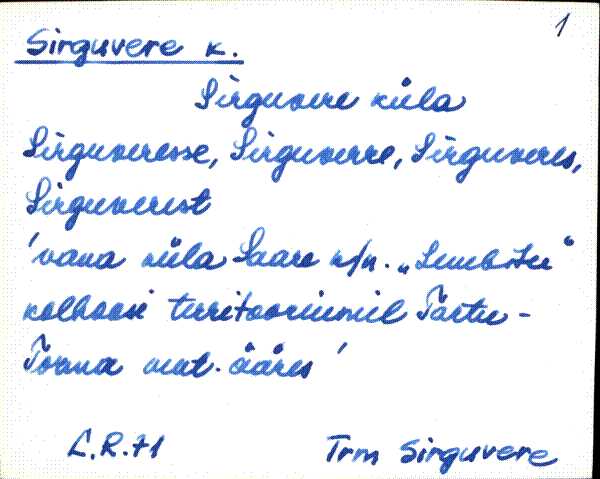 1
Sirguvere k.
Sirguvere küla
Sirguveresse, Sirguverre, Sirguveres,
Sirguverest
'vana küla Saare k/n. „Lembitu"
kolhoosi territooriumil Tartu-
Torma mnt. ääres'
L.R.71 Trm Sirguvere